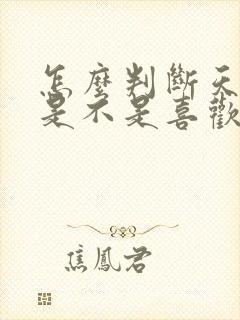 怎麼判斷天
是不是喜歡
焦鳳君